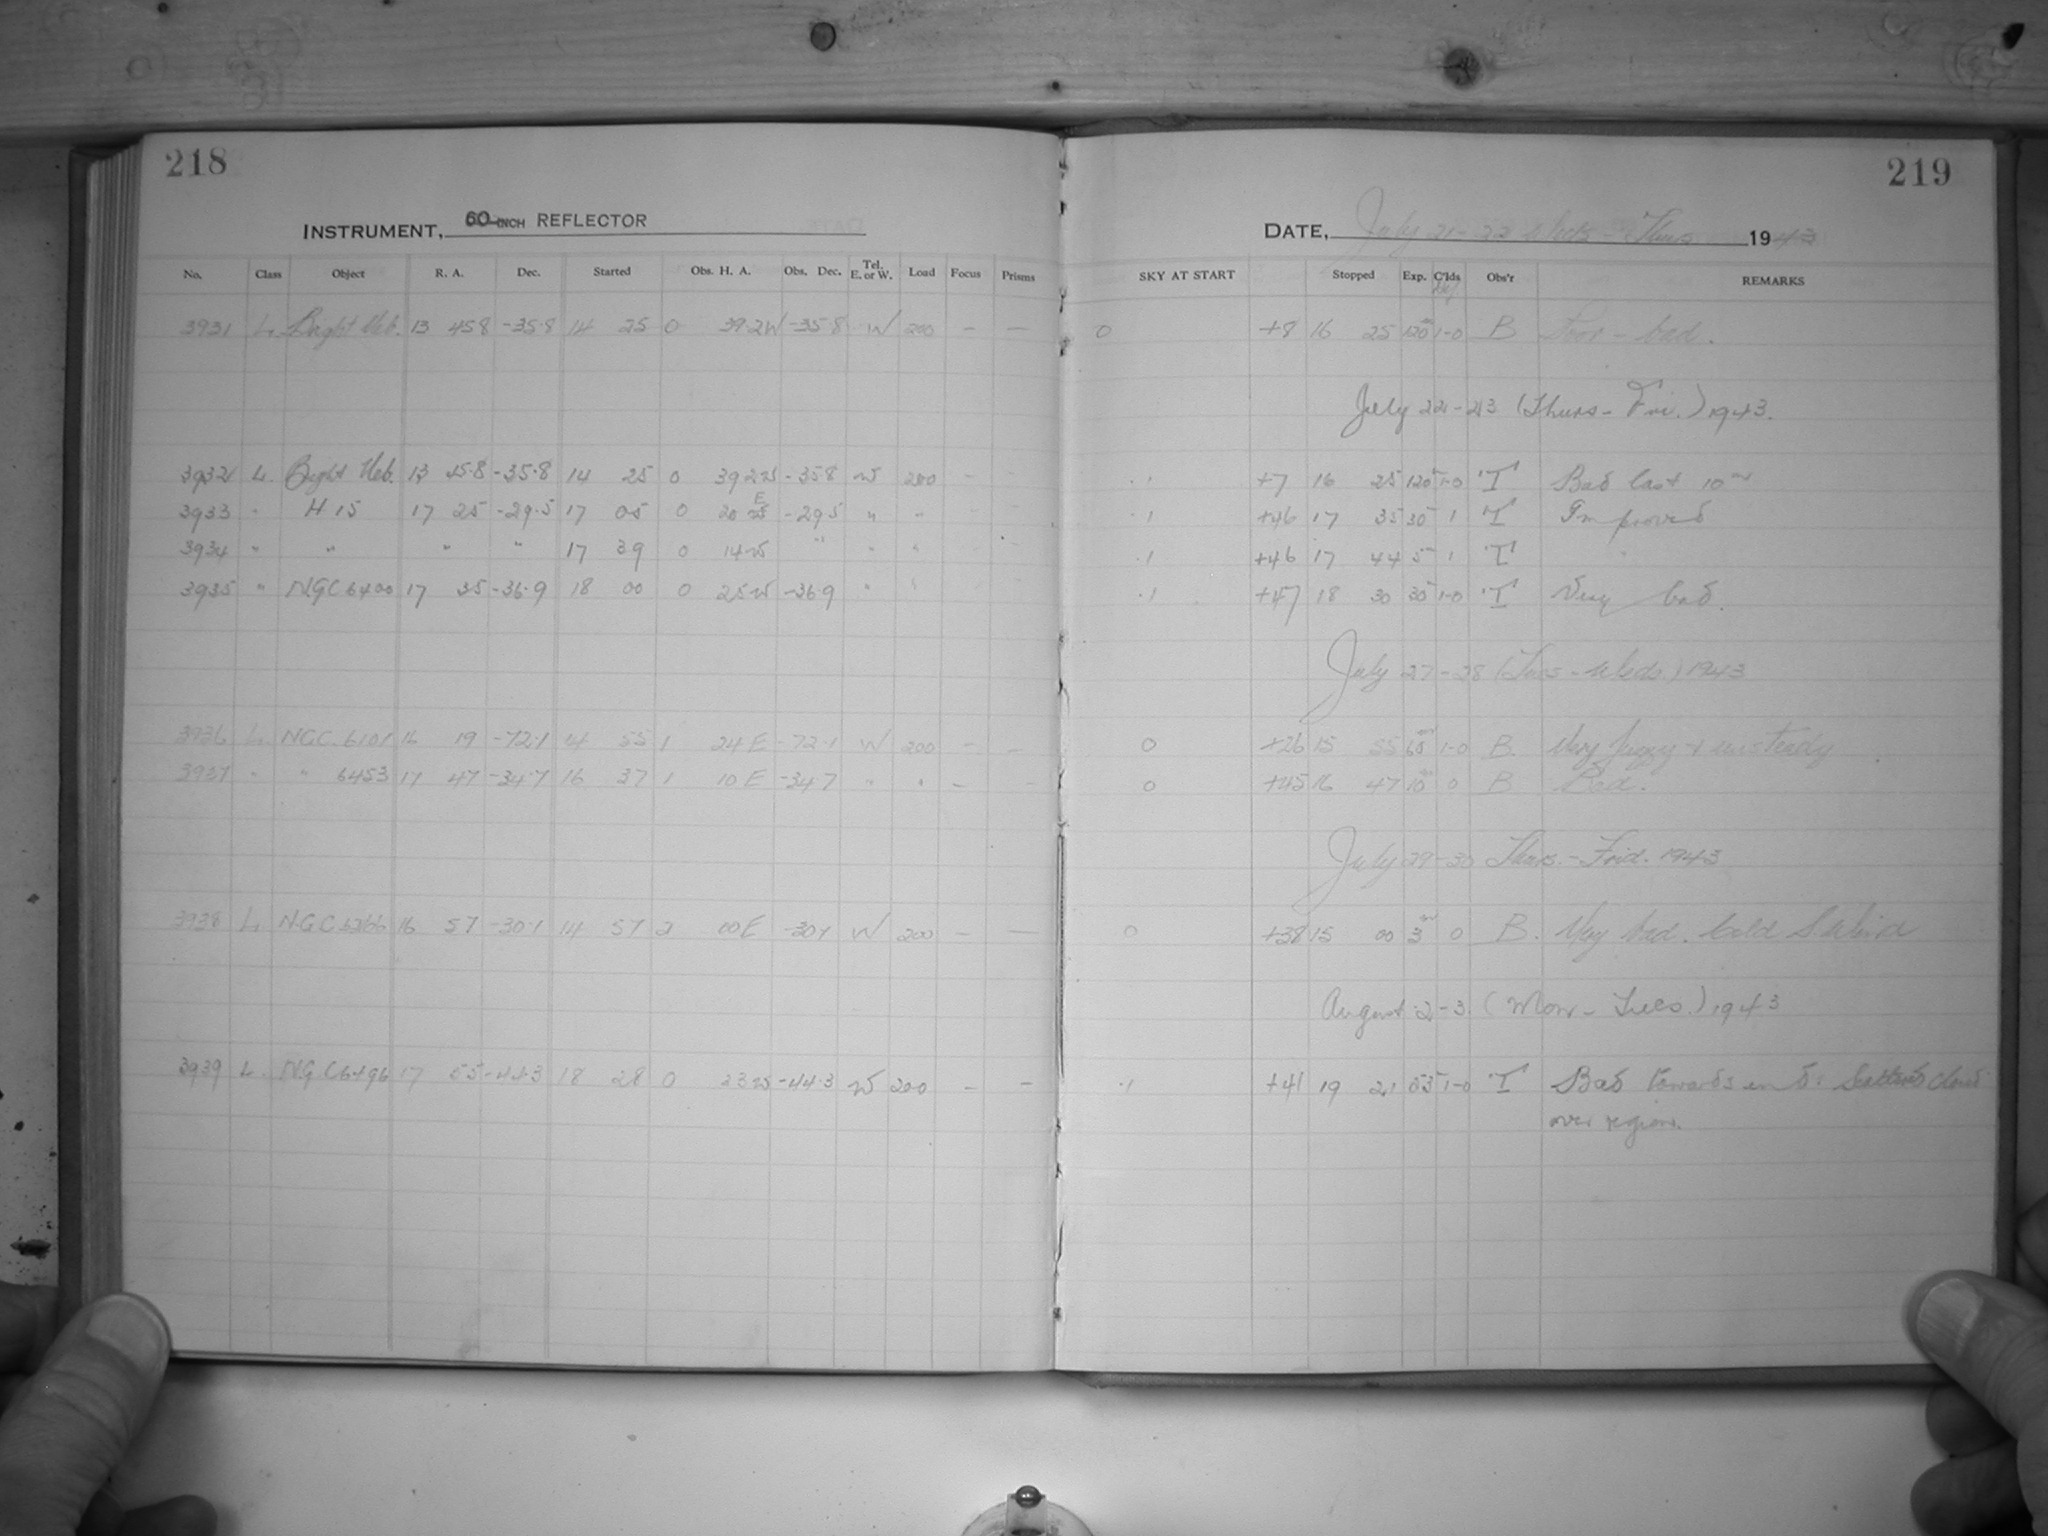 218
219
INSTRUMENT, 60-INCH REFLECTOR
DATE, July 21-22 Weds - Thurs 1943
No. Class Object R. A. Dec. Started Obs. H. A. Obs. Dec. Tel. E. or W. Load Focus Prisms SKY AT START Stopped Exp. C'lds Obs'r REMARKS
3931 L. Bright Neb. 13 45 8 -35.8 14 25 0 39.2W -35 8 W 200 - - 0 +8 16 25 120 1-0 B Poor - bad.
July 22-23 (Thurs - Fri.) 1943.
3932 L. Bright Neb. 13 45.8 -35.8 14 25 0 39 2W -35 8 W 200 - 1 +7 16 25 120 1-0 T Bad last 10m
3933 " H 15 17 25 -29.5 17 05 0 20 E -29 5 " " 1 +46 17 35 30 1 T Improved
3934 " " " " 17 39 0 14W " " " 1 +46 17 44 5 1 T "
3935 " NGC 6400 17 35 -36.9 18 00 0 25W -36.9 " " 1 +47 18 30 30 1-0 T Very bad.
July 27-28 (Tues - Weds.) 1943
3936 L. NGC. 6101 16 19 -72.1 14 55 1 24 E -72.1 W 200 - - 0 +26 15 55 60 1-0 B. Very fuzzy + unsteady
3937 " " 6453 17 47 -34.7 16 37 1 10 E -34.7 " " - - 0 +45 16 47 10 0 B Bad.
July 29-30 Thurs. - Frid. 1943
3938 L NGC 6266 16 57 -30.1 14 57 2 00 E -30.1 W 200 - - 0 +38 15 00 3 0 B. Very bad. Cold S Wind
August 2-3 (Mon - Tues.) 1943
3939 L. NGC 6496 17 55 -44.3 18 28 0 33W -44.3 W 200 - - 1 +41 19 21 53 1-0 T Bad towards end: Scattered cloud
over region.